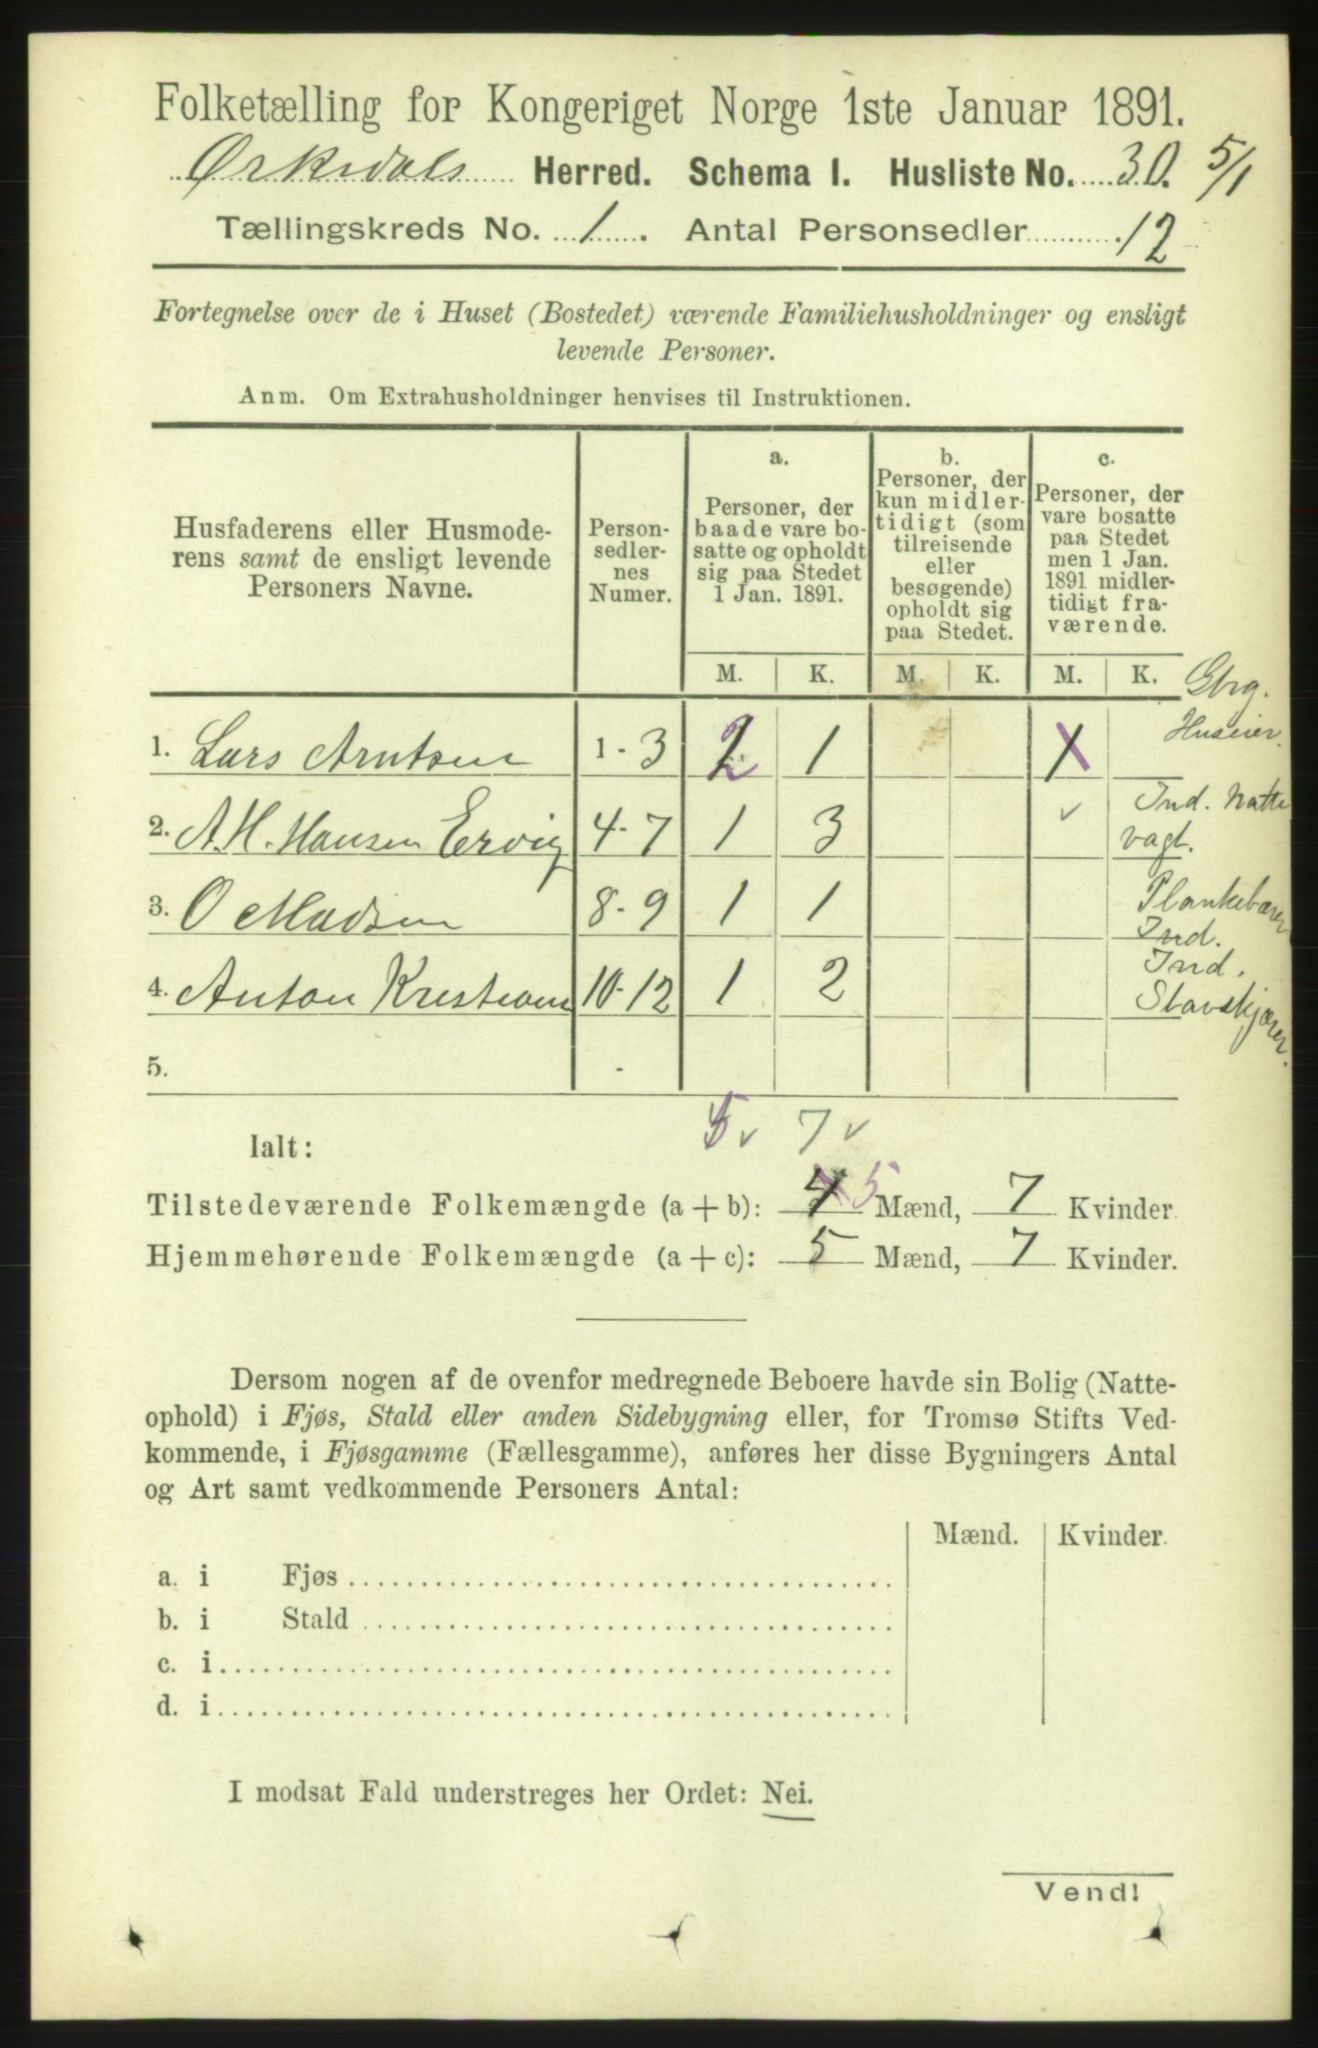 Folketælling for Kongeriget Norge 1ste Januar 1891.
Ørkedals Herred. Schema I. Husliste No. 30. 5/1
Tællingskreds No. 1. Antal Personsedler 12
Fortegnelse over de i Huset (Bostedet) værende Familiehusholdninger og ensligt
levende Personer.
Anm. Om Extrahusholdninger henvises til Instruktionen.
Husfaderens eller Husmode-
rens samt de ensligt levende
Personers Navne.
Person-
sedler-
nes
Numer.
a.
Personer, der
baade vare bo-
satte og opholdt
sig paa Stedet
1 Jan. 1891.
b.
Personer, der
kun midler-
tidigt (som
tilreisende
eller
besøgende)
opholdt sig
paa Stedet.
c.
Personer, der
vare bosatte
paa Stedet
men 1 Jan.
1891 midler-
tidigt fra-
værende.
M. K. M. K. M. K.
Gbrg.
Huseier.
1. Lars Arntsen 1 - 3 2 1 X
Ind. Natte
vagt.
2. A. H. Hansen Ervig 4 - 7 1 3 ✓
Plankebærer
Ind.
3. O Madsen 8 - 9 1 1
Ind.
Stavskjærer.
4. Anton Kristian 10 - 12 1 2
5. -
Ialt: 5 ✓ 7 ✓
Tilstedeværende Folkemængde (a + b): 4 5 Mænd, 7 Kvinder
Hjemmehørende Folkemængde (a + c): 5 Mænd, 7 Kvinder.
Dersom nogen af de ovenfor medregnede Beboere havde sin Bolig (Natte-
ophold) i Fjøs, Stald eller anden Sidebygning eller, for Tromsø Stifts Ved-
kommende, i Fjøsgamme (Fællesgamme), anføres her disse Bygningers Antal
og Art samt vedkommende Personers Antal:
Mænd. Kvinder.
a. i Fjøs
b. i Stald
c. i
d. i
I modsat Fald understreges her Ordet: Nei.
Vend!